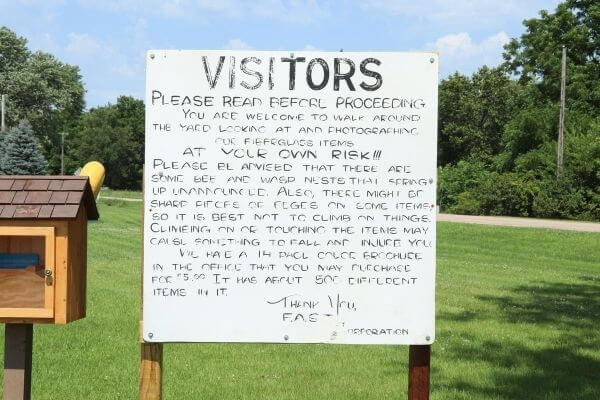 VISITORS
PLEASE READ BEFORE PROCEEDING
YOU ARE WELCOME TO WALK AROUND
THE YARD LOOKING AT AND PHOTOGRAPHING
OUR FIBERGLASS ITEMS
AT YOUR OWN RISK!!!
PLEASE BE ADVISED THAT THERE ARE
SOME BEE AND WASP NESTS THAT SPRING
UP UNANNOUNCED. ALSO, THERE MIGHT BE
SHARP PIECES OR EDGES ON SOME ITEMS,
SO IT IS BEST NOT TO CLIMB ON THINGS.
CLIMBING ON OR TOUCHING THE ITEMS MAY
CAUSE SOMETHING TO FALL AND INJURE YOU.
WE HAVE A 14 PAGE COLOR BROCHURE
IN THE OFFICE THAT YOU MAY PURCHASE
FOR $5.00 IT HAS ABOUT 500 DIFFERENT
ITEMS IN IT.
THANK YOU,
F.A.S.T.
CORPORATION